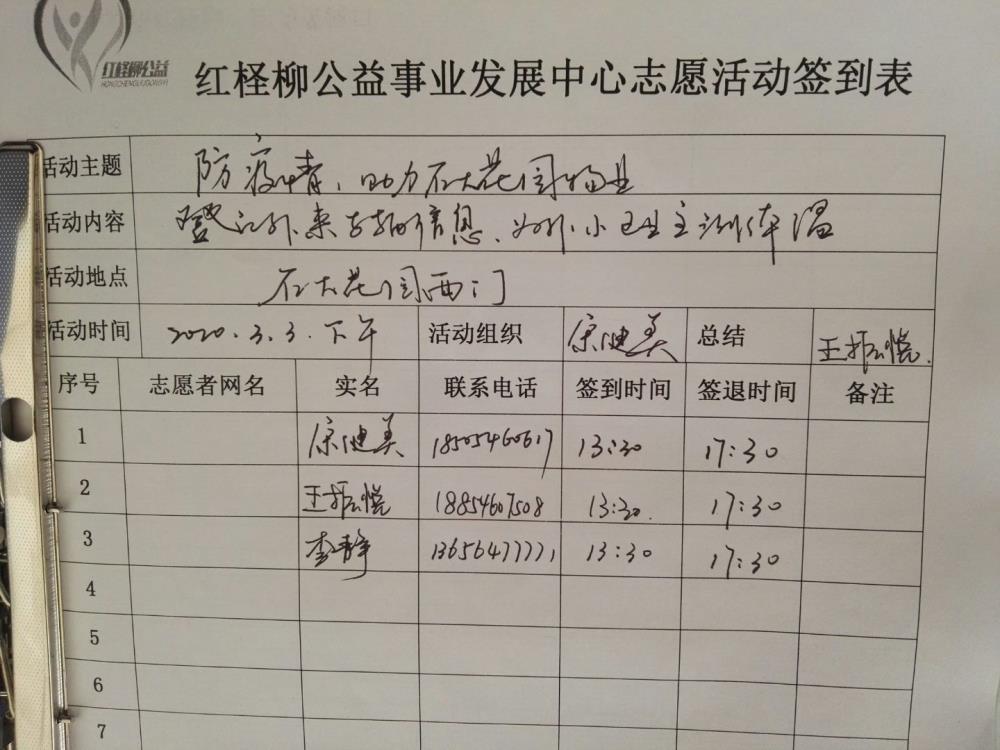 红柽柳公益
HONGCHENGLIUGONGYI
红柽柳公益事业发展中心志愿活动签到表
活动主题 防疫情、助力石大花园物业
活动内容 登记外来车辆信息、为小区业主测体温
活动地点 石大花园西门
活动时间 2020.3.3.下午 活动组织 康健美 总结 王振悦.
序号 志愿者网名 实名 联系电话 签到时间 签退时间 备注
1 康健美 18505460617 13:30 17:30
2 王振悦 18854607508 13:30. 17:30
3 李静 13656477771 13:30 17:30
4
5
6
7